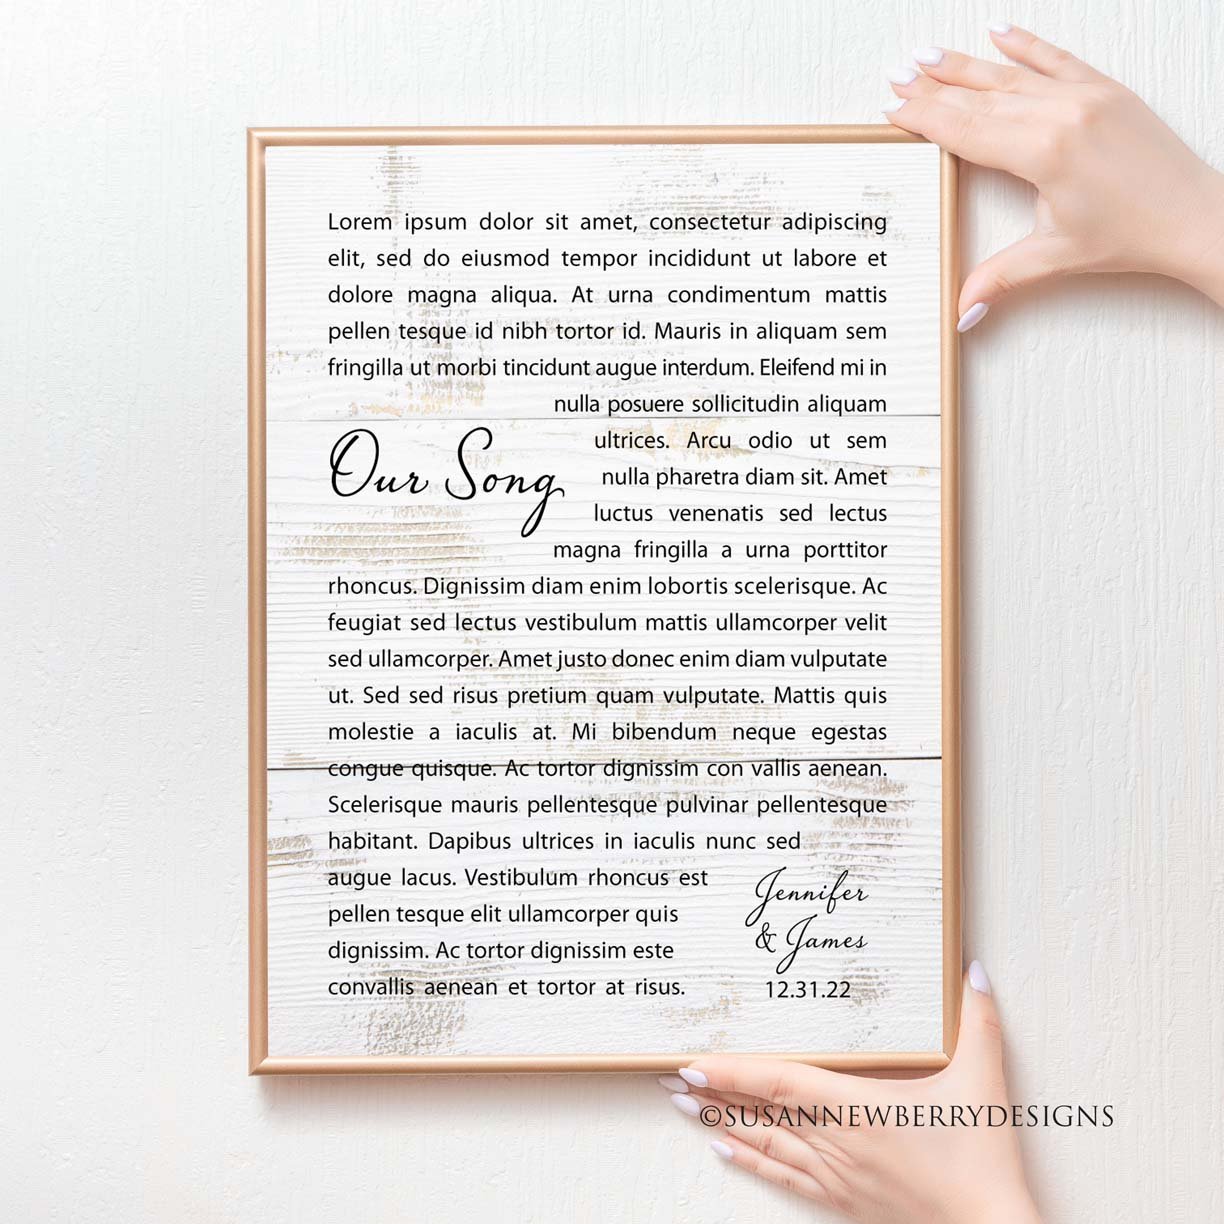 Lorem ipsum dolor sit amet, consectetur adipiscing
elit, sed do eiusmod tempor incididunt ut labore et
dolore magna aliqua. At urna condimentum mattis
pellen tesque id nibh tortor id. Mauris in aliquam sem
fringilla ut morbi tincidunt augue interdum. Eleifend mi in
nulla posuere sollicitudin aliquam
ultrices. Arcu odio ut sem
Our Song
nulla pharetra diam sit. Amet
luctus venenatis sed lectus
magna fringilla a urna porttitor
rhoncus. Dignissim diam enim lobortis scelerisque. Ac
feugiat sed lectus vestibulum mattis ullamcorper velit
sed ullamcorper. Amet justo donec enim diam vulputate
ut. Sed sed risus pretium quam vulputate. Mattis quis
molestie a iaculis at. Mi bibendum neque egestas
congue quisque. Ac tortor dignissim con vallis aenean.
Scelerisque mauris pellentesque pulvinar pellentesque
habitant. Dapibus ultrices in iaculis nunc sed
augue lacus. Vestibulum rhoncus est
pellen tesque elit ullamcorper quis
dignissim. Ac tortor dignissim este
convallis aenean et tortor at risus.
Jennifer
& James
12.31.22
©SUSANNEWBERRYDESIGNS